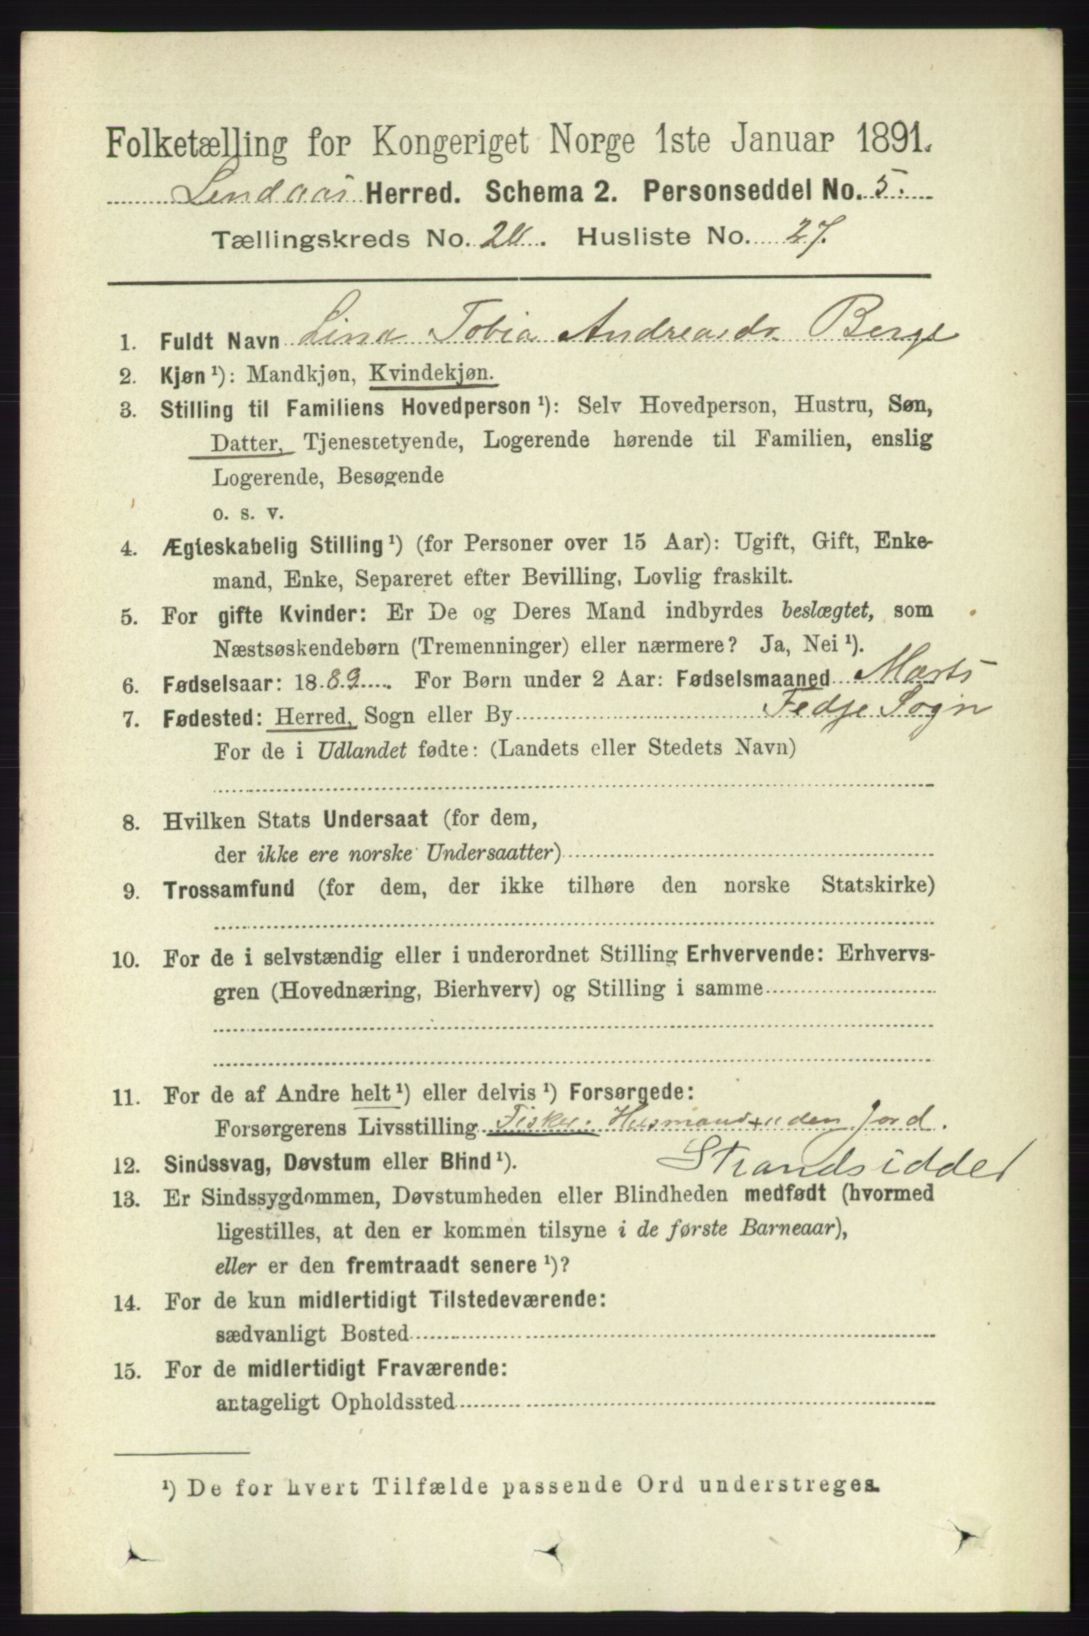 Folketælling for Kongeriget Norge 1ste Januar 1891.
Lindaas Herred. Schema 2. Personseddel No. 5.
Tællingskreds No. 20. Husliste No. 27.
1. Fuldt Navn Lina Tobia Andreasdr. Berge
2. Kjøn¹): Mandkjøn, Kvindekjøn.
3. Stilling til Familiens Hovedperson¹): Selv Hovedperson, Hustru, Søn,
Datter, Tjenestetyende, Logerende hørende til Familien, enslig
Logerende, Besøgende
o. s. v.
4. Ægteskabelig Stilling¹) (for Personer over 15 Aar): Ugift, Gift, Enke-
mand, Enke, Separeret efter Bevilling, Lovlig fraskilt.
5. For gifte Kvinder: Er De og Deres Mand indbyrdes beslægtet, som
Næstsøskendebørn (Tremenninger) eller nærmere? Ja, Nei¹).
6. Fødselsaar: 1889. For Børn under 2 Aar: Fødselsmaaned Marts
7. Fødested: Herred, Sogn eller By Fedje Sogn
For de i Udlandet fødte: (Landets eller Stedets Navn)
8. Hvilken Stats Undersaat (for dem,
der ikke ere norske Undersaatter)
9. Trossamfund (for dem, der ikke tilhøre den norske Statskirke)
10. For de i selvstændig eller i underordnet Stilling Erhvervende: Erhvervs-
gren (Hovednæring, Bierhverv) og Stilling i samme
11. For de af Andre helt¹) eller delvis¹) Forsørgede:
Forsørgerens Livsstilling Fisker. Husmand + uden Jord.
12. Sindssvag, Døvstum eller Blind¹). Strandsidder
13. Er Sindssygdommen, Døvstumheden eller Blindheden medfødt (hvormed
ligestilles, at den er kommen tilsyne i de første Barneaar),
eller er den fremtraadt senere¹)?
14. For de kun midlertidigt Tilstedeværende:
sædvanligt Bosted
15. For de midlertidigt Fraværende:
antageligt Opholdssted
¹) De for hvert Tilfælde passende Ord understreges.